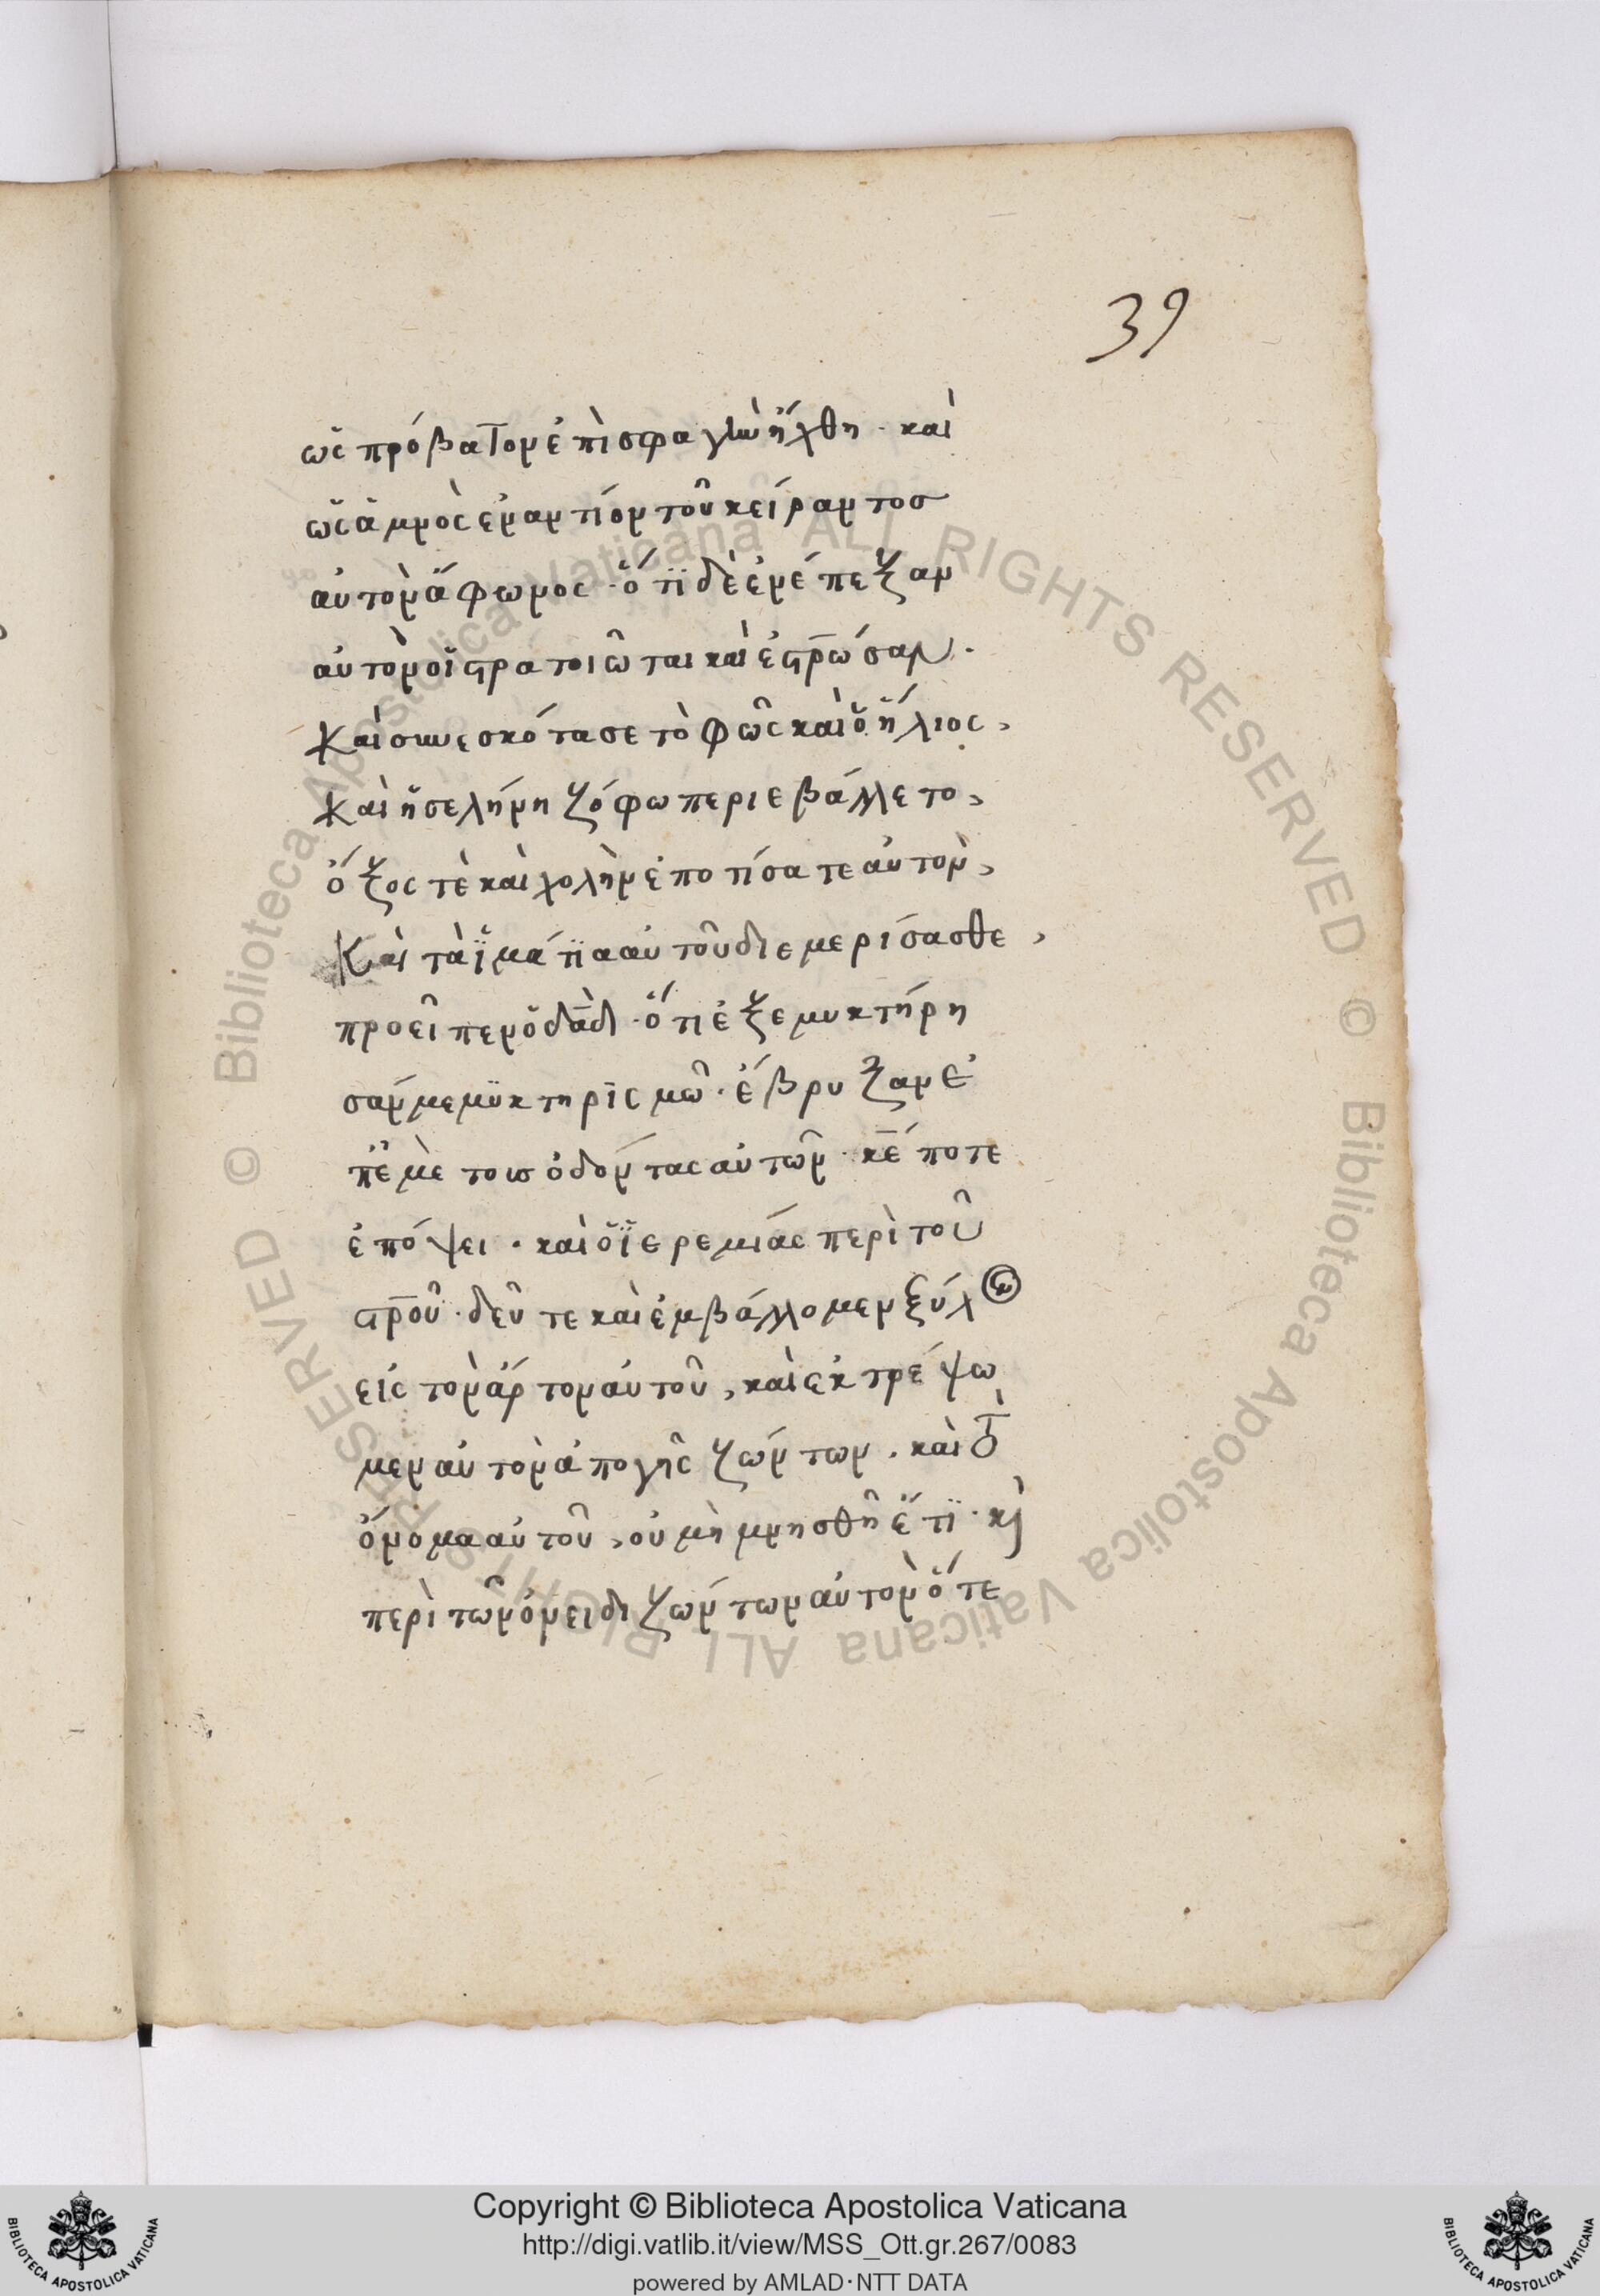 39
ὡς πρόβατον ἐπὶ σφαγὴν ἤχθη · καὶ
ὡς ἀμνὸς ἐναντίον τοῦ κείραντοσ
αὐτὸν ἄφωνος · ὅτϊ δὲ ἐνέπεξαν
αὐτὸν οἱ στρατοιῶται καὶ ἐστρ̅ώσαν ·
Καὶ συνεσκότασε τὸ φῶς καὶ ὁ ἥλιος,
Καὶ ἡ σελήνη ζόφω περιεβάλλετο,
ὄξος τὲ καὶ χολὴν ἐποτίσατε αὐτὸν,
Καὶ τὰ ἱμάτϊα αὐτοῦ διεμερίσασθε,
προεῖπεν ὁ δα̅δ · ὅτι ἐξεμυκτήρη
σάν με μϋκτηρϊσμῶ · ἔβρυξαν ἐ
π' ἐμὲ τοὺσ ὀδόντας αὐτῶν · κ̅ε πότε
ἐπόψει · καὶ ὁ ἱερεμίας περὶ τοῦ
στρ̅οῦ · δεῦτε καὶ ἐμβάλλομεν ξύλον
εἰς τὸν ἄρτον αὐτοῦ, καὶ ἐκτρέψω
μεν αὐτὸν ἀπὸ γῆς ζώντων · καὶ τὸ
ὄνομα αὐτοῦ, οὐ μὴ μνησθῆ ἔτϊ · κὶ
περὶ τῶν ὀνειδιζώντων αὐτὸν ὅτε
Biblioteca Apostolica Vaticana ALL RIGHTS RESERVED ©
Biblioteca Apostolica Vaticana ALL RIGHTS RESERVED ©
Copyright © Biblioteca Apostolica Vaticana
http://digi.vatlib.it/view/MSS_Ott.gr.267/0083
powered by AMLAD·NTT DATA
BIBLIOTECA APOSTOLICA VATICANA
BIBLIOTECA APOSTOLICA VATICANA